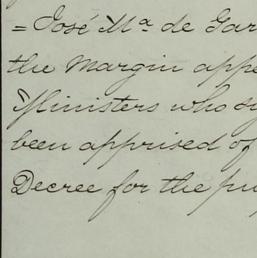 = José Mª de Gar
the Margin appe
Ministers who si
been apprised of
Decree for the pu